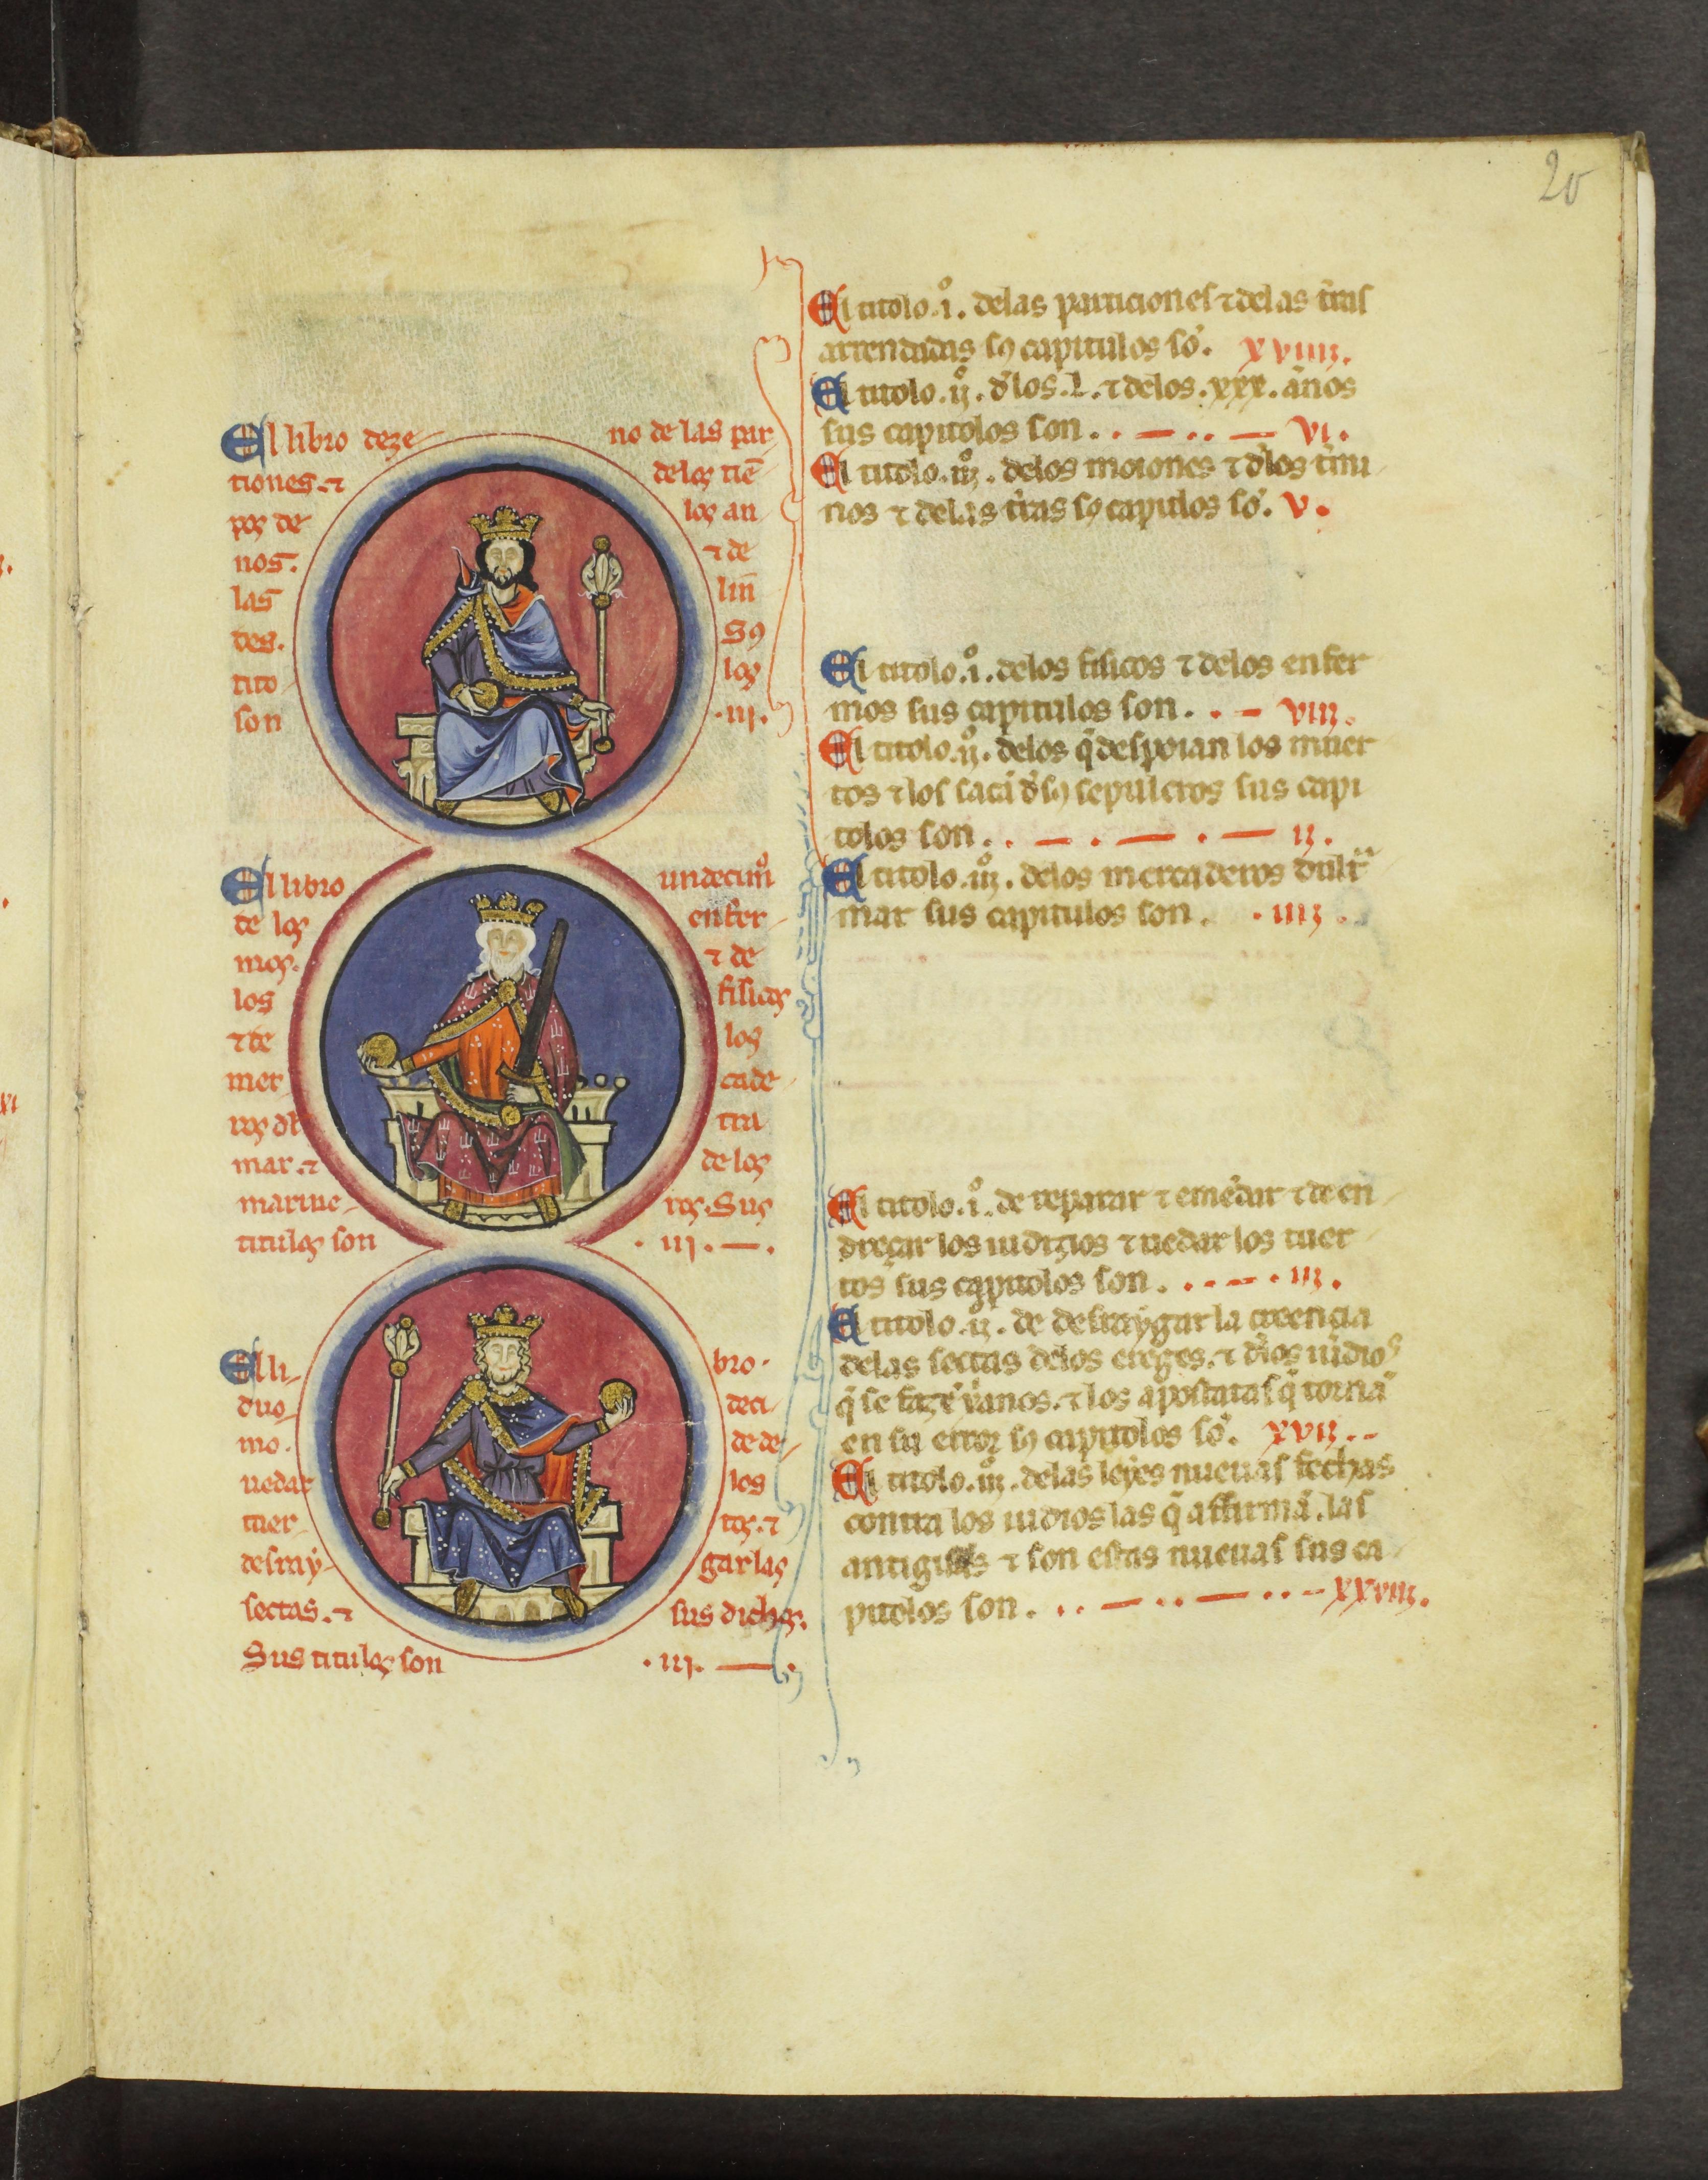 20
El libro deze no de las par
tiones. ⁊ delos tiē
pos de los an
nos. ⁊ de
las lin̄
des. Sꝰ
tito los
son .iij.
El libro undecimͦ
de los enfer
mos. ⁊ de
los fisicos
⁊ de los
mer cade
ros dl̓ tra
mar. ⁊ de los
marine ros. Sus
titulos son . iij. — .
El li bro.
duo deci
mo. de de
uedar los
tuer tos. ⁊
desray gar las
sectas. ⁊ sus dichos.
Sus titulos son . iij. — .
El titolo .iͦ. delas particiones ⁊ delas tr̄as
arrendadas sꝰ capitulos sō. xviiij.
El titolo .ijͦ. d̓los .L. ⁊ delos .xxx. ānos
sus capitolos son . . — . . — vi.
El titolo .iijͦ. delos moiones ⁊ d̓los t̓mi
nos ⁊ delas tr̄as sꝰ capitulos sō. v.
El titolo .iͦ. delos fisicos ⁊ delos enfer
mos sus capitulos son . . — viij.
El titolo .ijͦ. delos q̄ despoian los muer
tos ⁊ los sacā d̓ sꝰ sepulcros sus capi
tolos son . . — . — . — ij.
El titolo .iijͦ. delos mercaderos dult̃
mar sus capitulos son . . iiij .
El titolo .iͦ. de reparar ⁊ emēdar ⁊ de en
dreçar los iudizios ⁊ uedar los tuer
tos sus capitolos son . . . — . iij.
El titolo .ijͦ. de desraygar la creencia
delas sectas delos ereges. ⁊ d̓los iudios
q̄ se fazē x̄anos. ⁊ los apostatas q̄ tornā
en su error sꝰ capitolos sō. xvij . .
El titolo .iijͦ. delas leyes nueuas fechas
contra los iudios las q̄ affirmā las
antiguas ⁊ son estas nueuas sus ca
pitolos son . . . — . . — . . — xxviij.